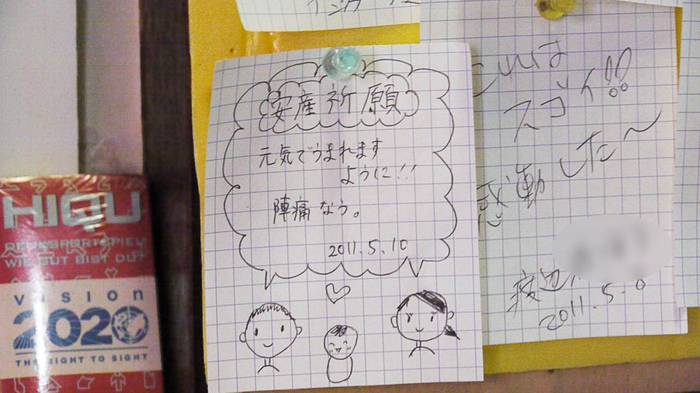 安産祈願
元気でうまれます
ように!!
陣痛なう。
2011.5.10
スゴイ!!
感動した〜
渡辺
HIQU
DENKSPORTSPIEL
WIE GUT BIST DU?
vision
2020
THE RIGHT TO SIGHT